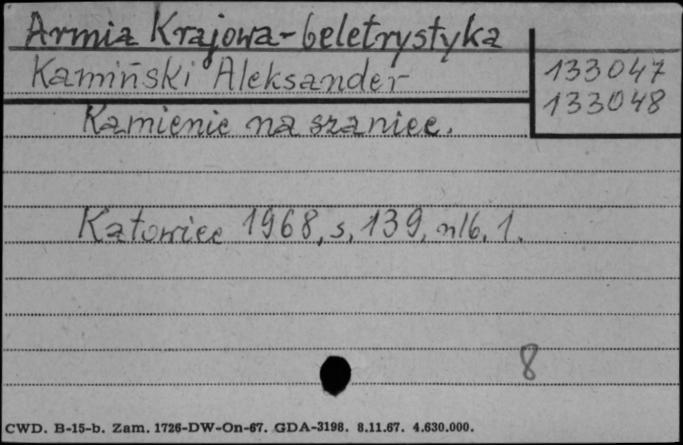 Armia Krajowa - beletrystyka
Kamiński Aleksander
133047
133048
Kamienie na szaniec.
Katowice 1968, s. 139, nlb. 1.
8
CWD. B-15-b. Zam. 1726-DW-On-67. GDA-3198. 8.11.67. 4.630.000.